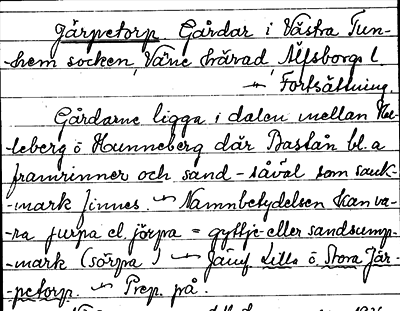 Järpetorp Gårdar i Västra Tun-
-hem socken, Väne härad Älfsborgs l.
Fortsättning.
Gårdarne ligga i dalen mellan Hal-
-leberg o Hunneberg där Bastån bl. a
framrinner och sand- såväl som sank-
-mark finnes. Namnbetydelsen kan va-
-ra jurpa el. jörpa = gyttje- eller sandsump-
-mark (sörpa) Jämf Lilla o Stora Jär-
-petorp. Prep. på.